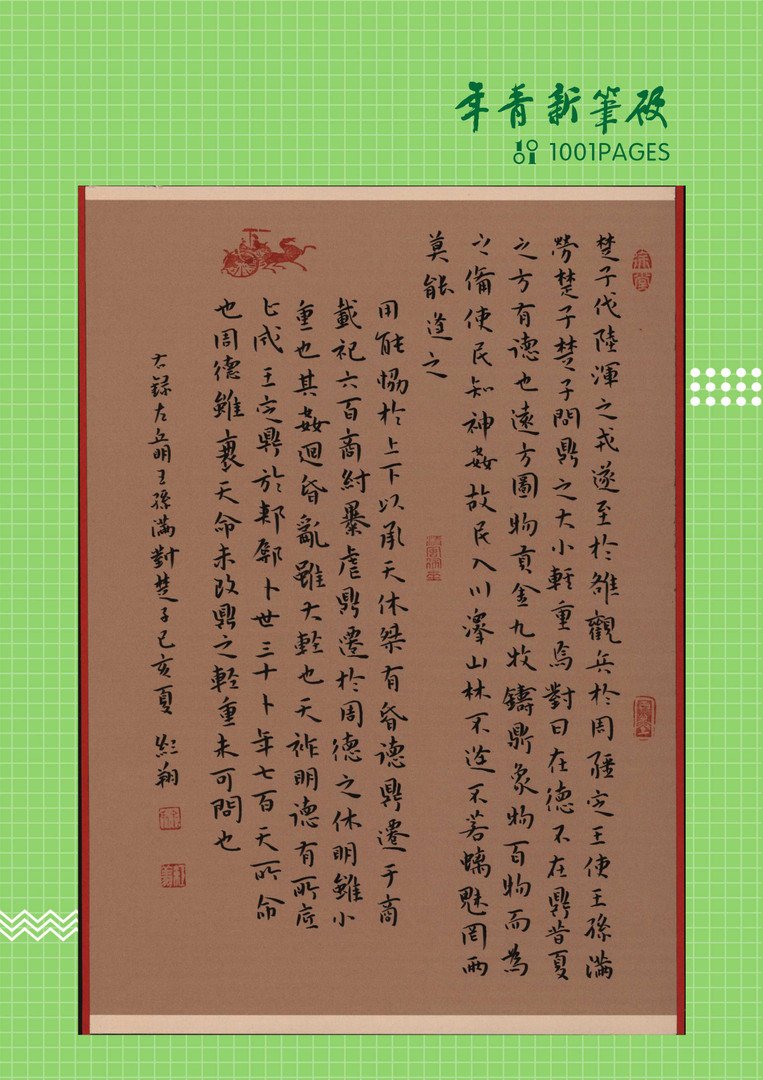 年青新筆
1001PAGES
楚子伐陸渾之戎遂至於雒觀兵於周疆定王使王孫滿
勞楚子楚子問鼎之大小輕重焉對曰在德不在鼎昔夏
之方有德也遠方圖物貢金九牧鑄鼎象物百物而為
之備使民知神姦故民入川澤山林不逢不若螭魅罔兩
莫能逢之
用能協於上下以承天休桀有昏德鼎遷于商
載祀六百商紂暴虐鼎遷於周德之休明雖小
重也其姦迴昏亂雖大輕也天祚明德有所底
止成王定鼎於郟鄏卜世三十卜年七百天所命
也周德雖衰天命未改鼎之輕重未可問也
右錄左丘明王孫滿對楚子己亥夏 翔